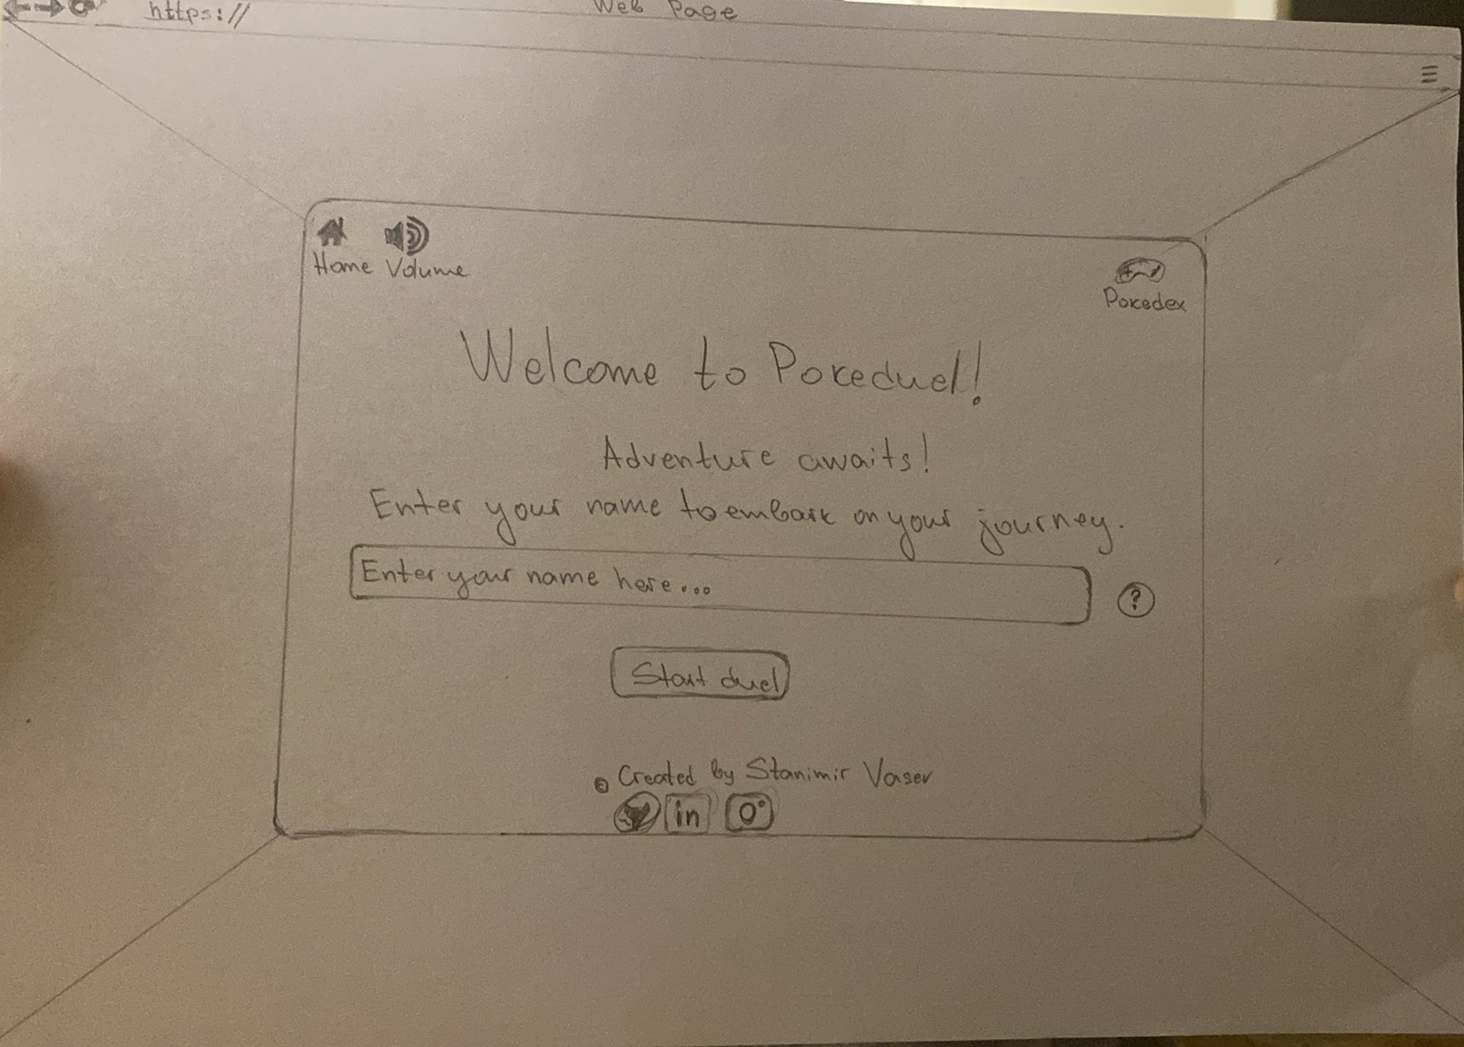 https://
Web Page
Home Volume
Pokedex
Welcome to Pokeduel!
Adventure awaits!
Enter your name to embark on your journey.
Enter your name here...
?
Start duel
Created by Stanimir Vasev
in